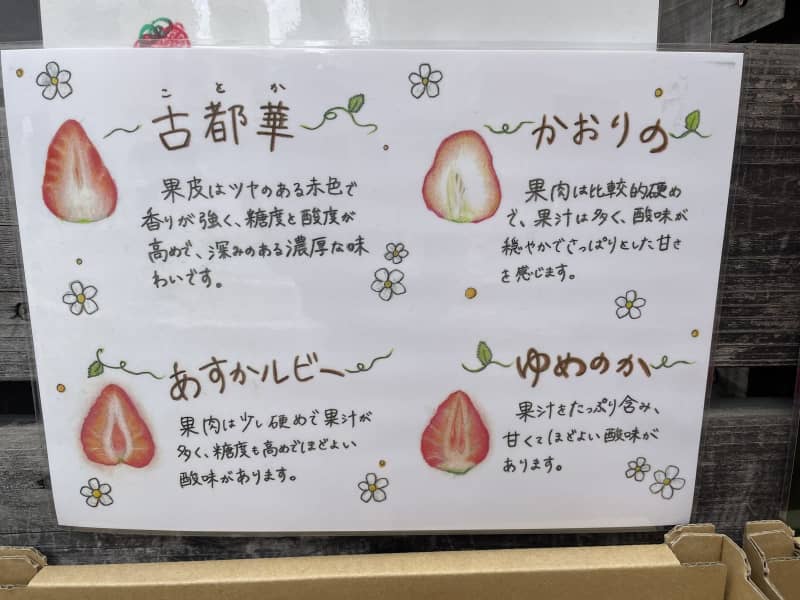 ことか
古都華
果皮はツヤのある赤色で
香りが強く、糖度と酸度が
高めで、深みのある濃厚な味
わいです。
かおりの
果肉は比較的硬め
で、果汁は多く、酸味が
穏やかでさっぱりとした甘さ
を感じます。
あすかルビー
果肉は少し硬めで果汁が
多く、糖度も高めでほどよい
酸味があります。
ゆめのか
果汁をたっぷり含み、
甘くてほどよい酸味が
あります。